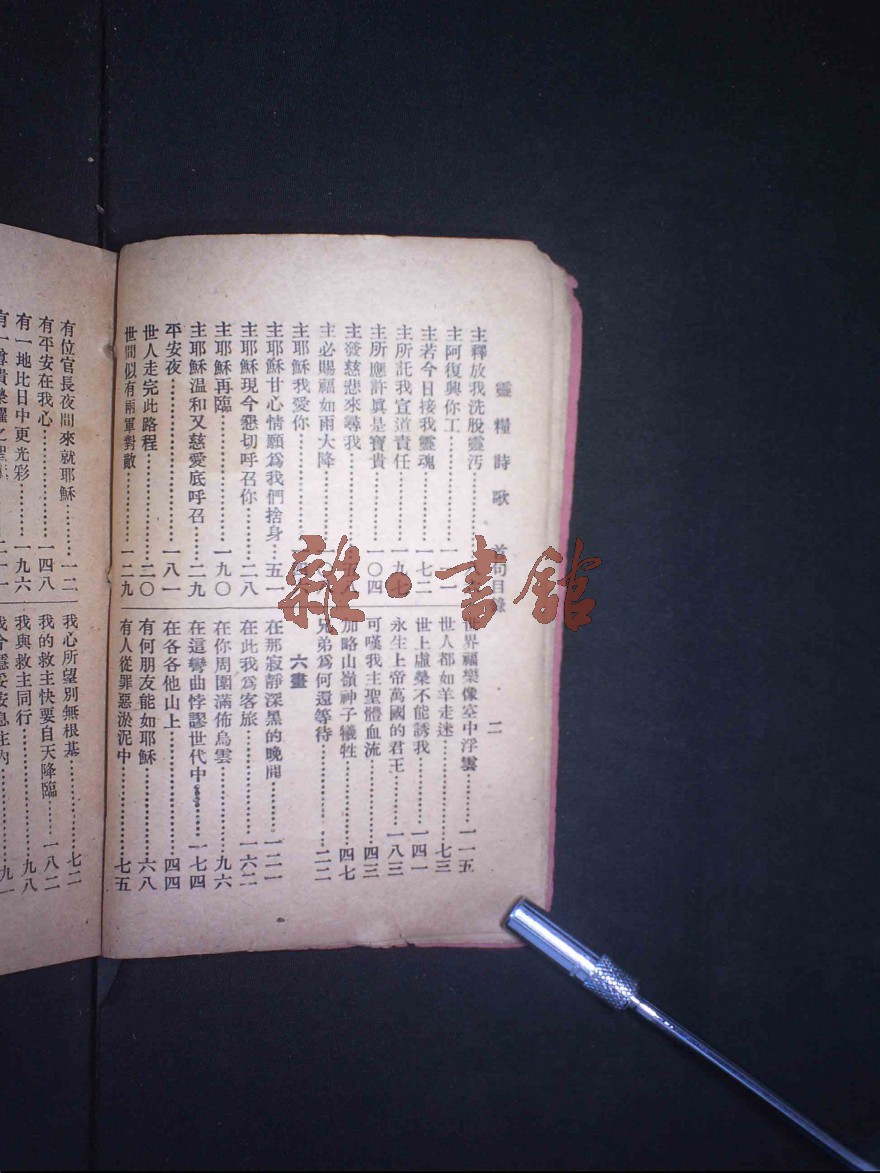 靈糧詩歌 首句目錄 二
主釋放我洗脫靈汚
主阿復興你工……一一一
主若今日接我靈魂……一七二
主所託我宣道責任……一九七
主所應許眞是寶貴……一〇四
主發慈悲來尋我
主必賜福如雨大降
主耶穌我愛你
主耶穌甘心情願爲我們捨身……五一
主耶穌現今懇切呼召你……二八
主耶穌再臨……一九〇
主耶穌温和又慈愛底呼召……二九
平安夜……一八一
世人走完此路程……二〇
世間似有兩軍對敵……一二九
世界福樂像空中浮雲……一一五
世人都如羊走迷……七三
世上虛榮不能誘我……一四一
永生上帝萬國的君王……一八三
可嘆我主聖體血流……四三
加略山嶺神子犧牲……四七
兄弟爲何還等待……二二
六畫
在那寂靜深黑的晚間……一二一
在此我爲客旅……一六二
在你周圍滿佈烏雲……九六
在這彎曲悖謬世代中……一七四
在各各他山上……四四
有何朋友能如耶穌……六八
有人從罪惡淤泥中……七五
有位官長夜間來就耶穌……一二
有平安在我心……一四八
有一地比日中更光彩……一九六
有一尊貴榮耀之聖
我心所望別無根基……七二
我的救主快要自天降臨……一八二
我與救主同行……九八
我今穩妥安息主內……九一
雜·書館